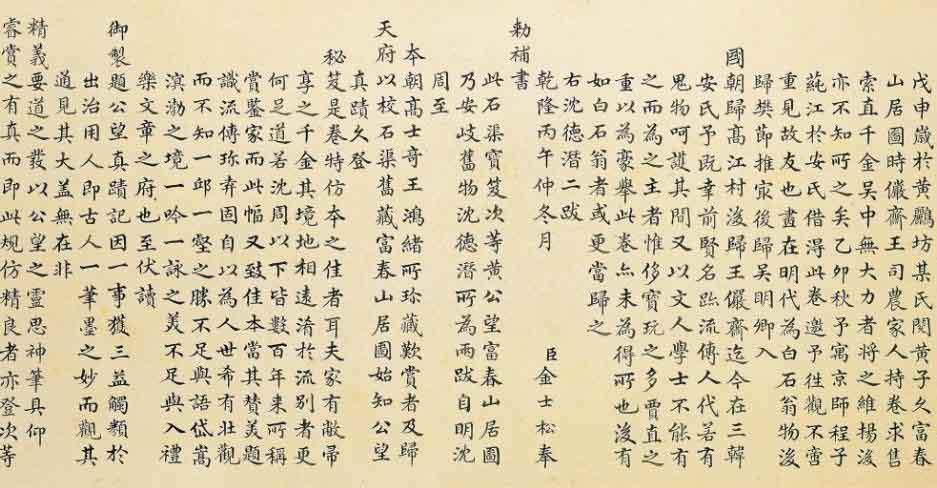 戊申嵗於黄鸝坊某氏閲黄子久富春
山居圖時儼齋王司農家人持卷求售
索直千金吴中無大力者將之維揚浚
亦不知所之矣乙卯秋予寓京師程子
蒓江於安氏借得此卷邀予徃觀不啻
重見故友也畫在明代為白石翁物浚
歸樊節推宷後歸吴明卿入
國朝歸髙江村浚歸王儼齋迄今在三韓
安氏予既幸前賢名跡流傳人代若有
鬼物呵護其間又以文人學士不能有
之而為之主者惟侈寳玩之多賈直之
重以為豪舉此卷亦未為得所也浚有
如白石翁者或更當歸之
右沈德潛二跋
乾隆丙午仲冬月 臣金士松奉
勅補書
此石渠寳笈次等黄公望富春山居圖
乃安岐舊物沈德潛所為兩跋自明沈
周至
本朝髙士奇王鴻緒所珍藏歎賞者及歸
天府以校石渠舊藏富春山居圖始知公望
真蹟久登
秘笈是卷特仿本之佳者耳夫家有敝帚
享之千金其境地相逺淆於流别者更
何足道若沈周以下皆數百年来所稱
賞鑒家而此幅又致佳本當其賛美題
識流傳珎弆固自以為人世希有壮觀
而不知一邱一壑之勝不足與語岱嵩
溟渤之境一吟一詠之美不足與入禮
樂文章之府也至伏讀
御製題公望真蹟記因一事獲三益觸類於
出治用人即古人一筆墨之妙而觀其
通見其大盖無在非
精義要道之發以公望之靈思神筆具仰
睿賞之有真而即此規仿精良者亦登次等